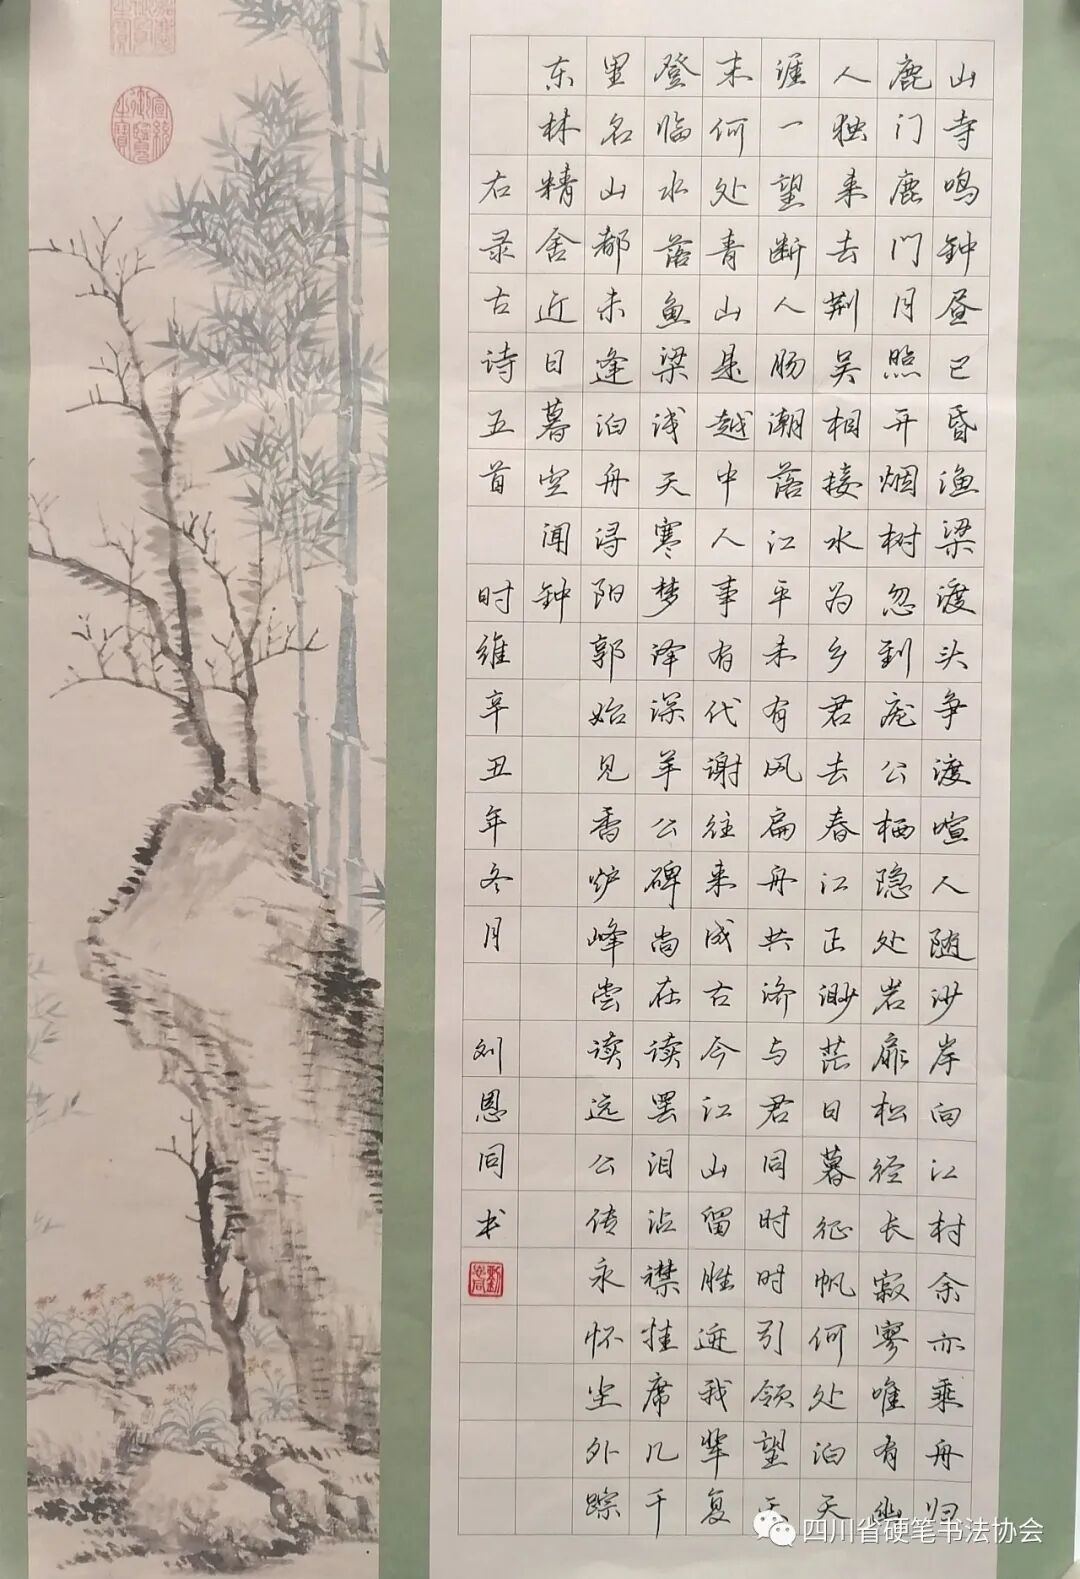 山寺鸣钟昼已昏渔梁渡头争渡喧人随沙岸向江村余亦乘舟归
鹿门鹿門月照开烟树忽到庞公栖隐处岩扉松径长寂寥唯有幽
人独来去荆吴相接水为乡君去春江正渺茫日暮征帆何处泊天
涯一望断人肠潮落江平未有风扁舟共济与君同时时引领望天
末何处青山是越中人事有代谢往来成古今江山留胜迹我辈复
登临水落鱼梁浅天寒梦泽深羊公碑尚在读罢泪沾襟挂席几千
里名山都未逢泊舟浔阳郭始见香炉峰尝读远公传永怀尘外踪
东林精舍近日暮空闻钟
右录古诗五首 时维辛丑年冬月 刘恩同书
宣統御覽之寶
四川省硬笔书法协会